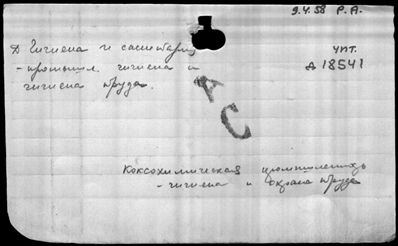 9.4.58 Р.А.
Д Гигиена и санитария
чит.
Д 18541
- промышл. гигиена и
гигиена труда.
АС
Коксохимическая промышленность
- гигиена и охрана труда